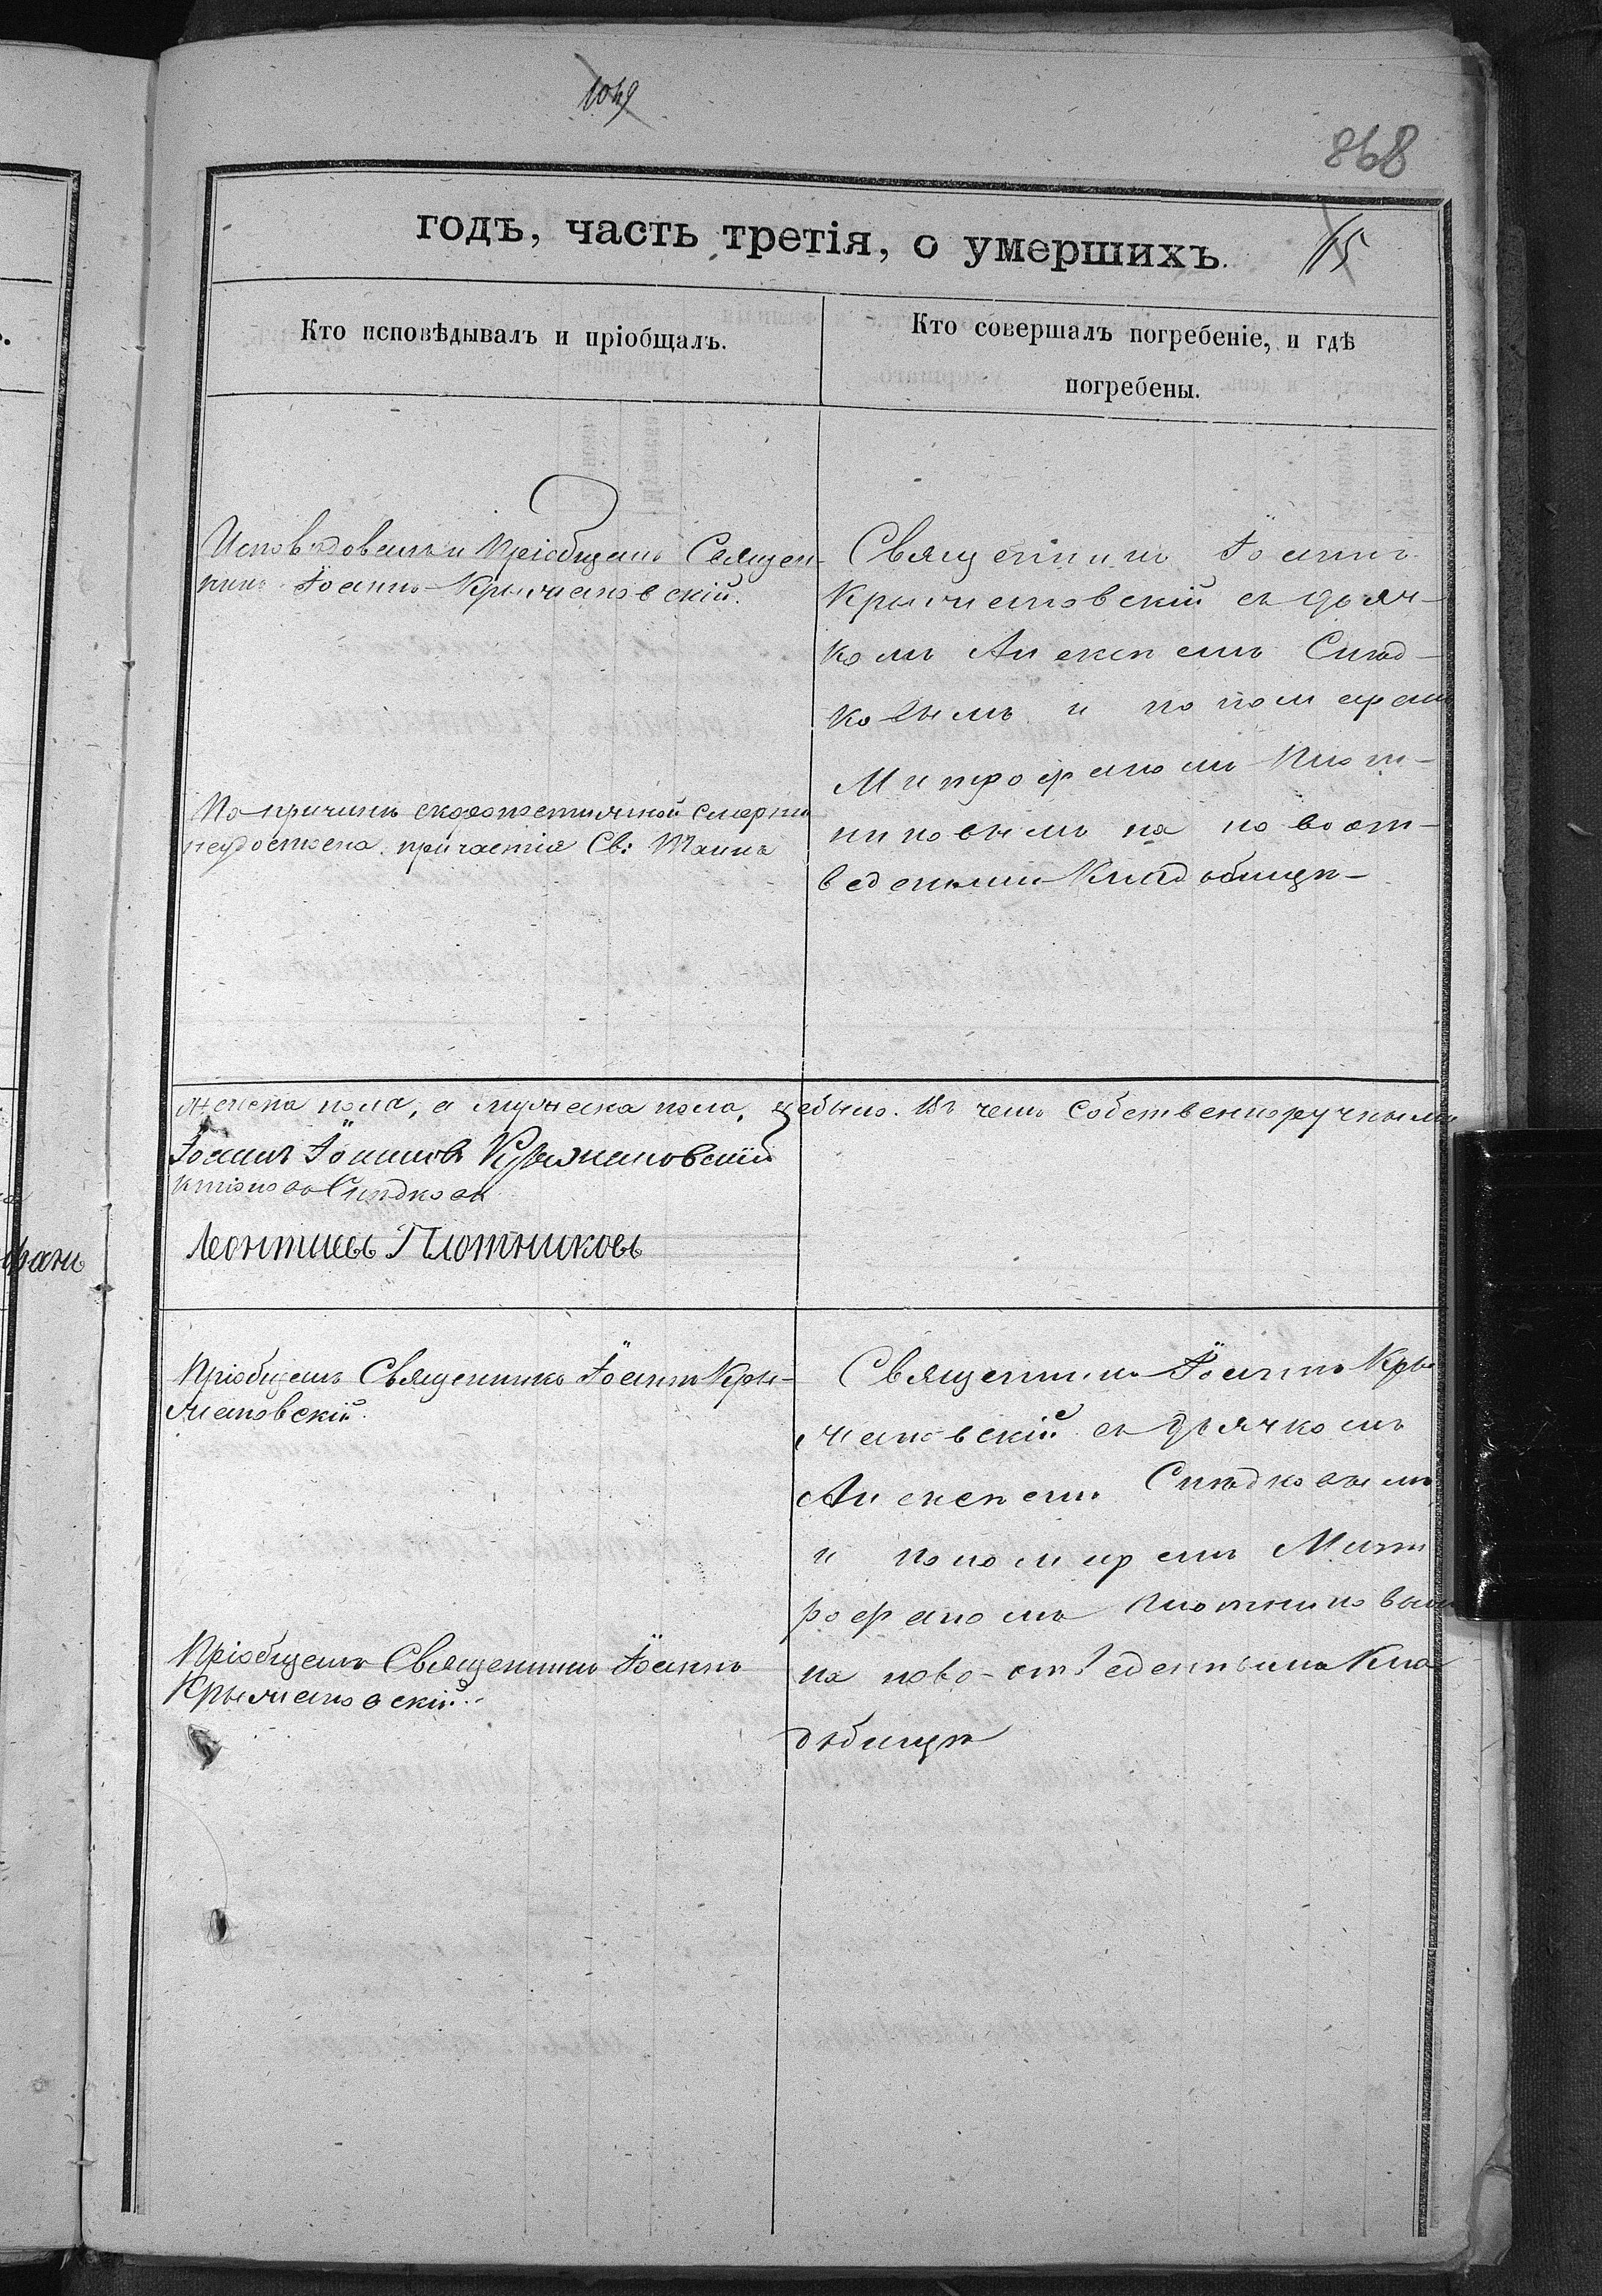 1049
868
годъ, часть третія, о умершихъ.
115
Кто исповѣдывалъ и пріобщалъ.
Кто совершалъ погребеніе, и гдѣ
погребены.
Исповѣдовалъ и Пріобщалъ Священ-
никъ Іоаннъ Крыжановскій.
По причинѣ скоропостижной смерти
неудостоена причастія Св: Таинъ
Священникъ Іоаннъ
Крыжановскій съ дьяч-
комъ Алексѣемъ Слѣд-
ковымъ и пономаремъ
Митрофаномъ Плот-
никовымъ на новоот-
веденномъ Кладбищѣ
женска пола, а мужеска пола, небыло. Въ чемъ Собственноручнымъ
Іоаннъ Іоанновъ Крыжановскій
Слѣдковъ
Леонтиевъ Плотниковъ
фанъ
Пріобщалъ Священникъ Іоаннъ Кры-
жановскій.
Пріобщалъ Священникъ Іоаннъ
Крыжановскій.
Священникъ Іоаннъ Кры
жановскій съ дьячкомъ
Алексѣемъ Слѣдковымъ
и пономаремъ Мит
рофаномъ Плотниковым
на ново-отведенномъ Кла
дбищѣ